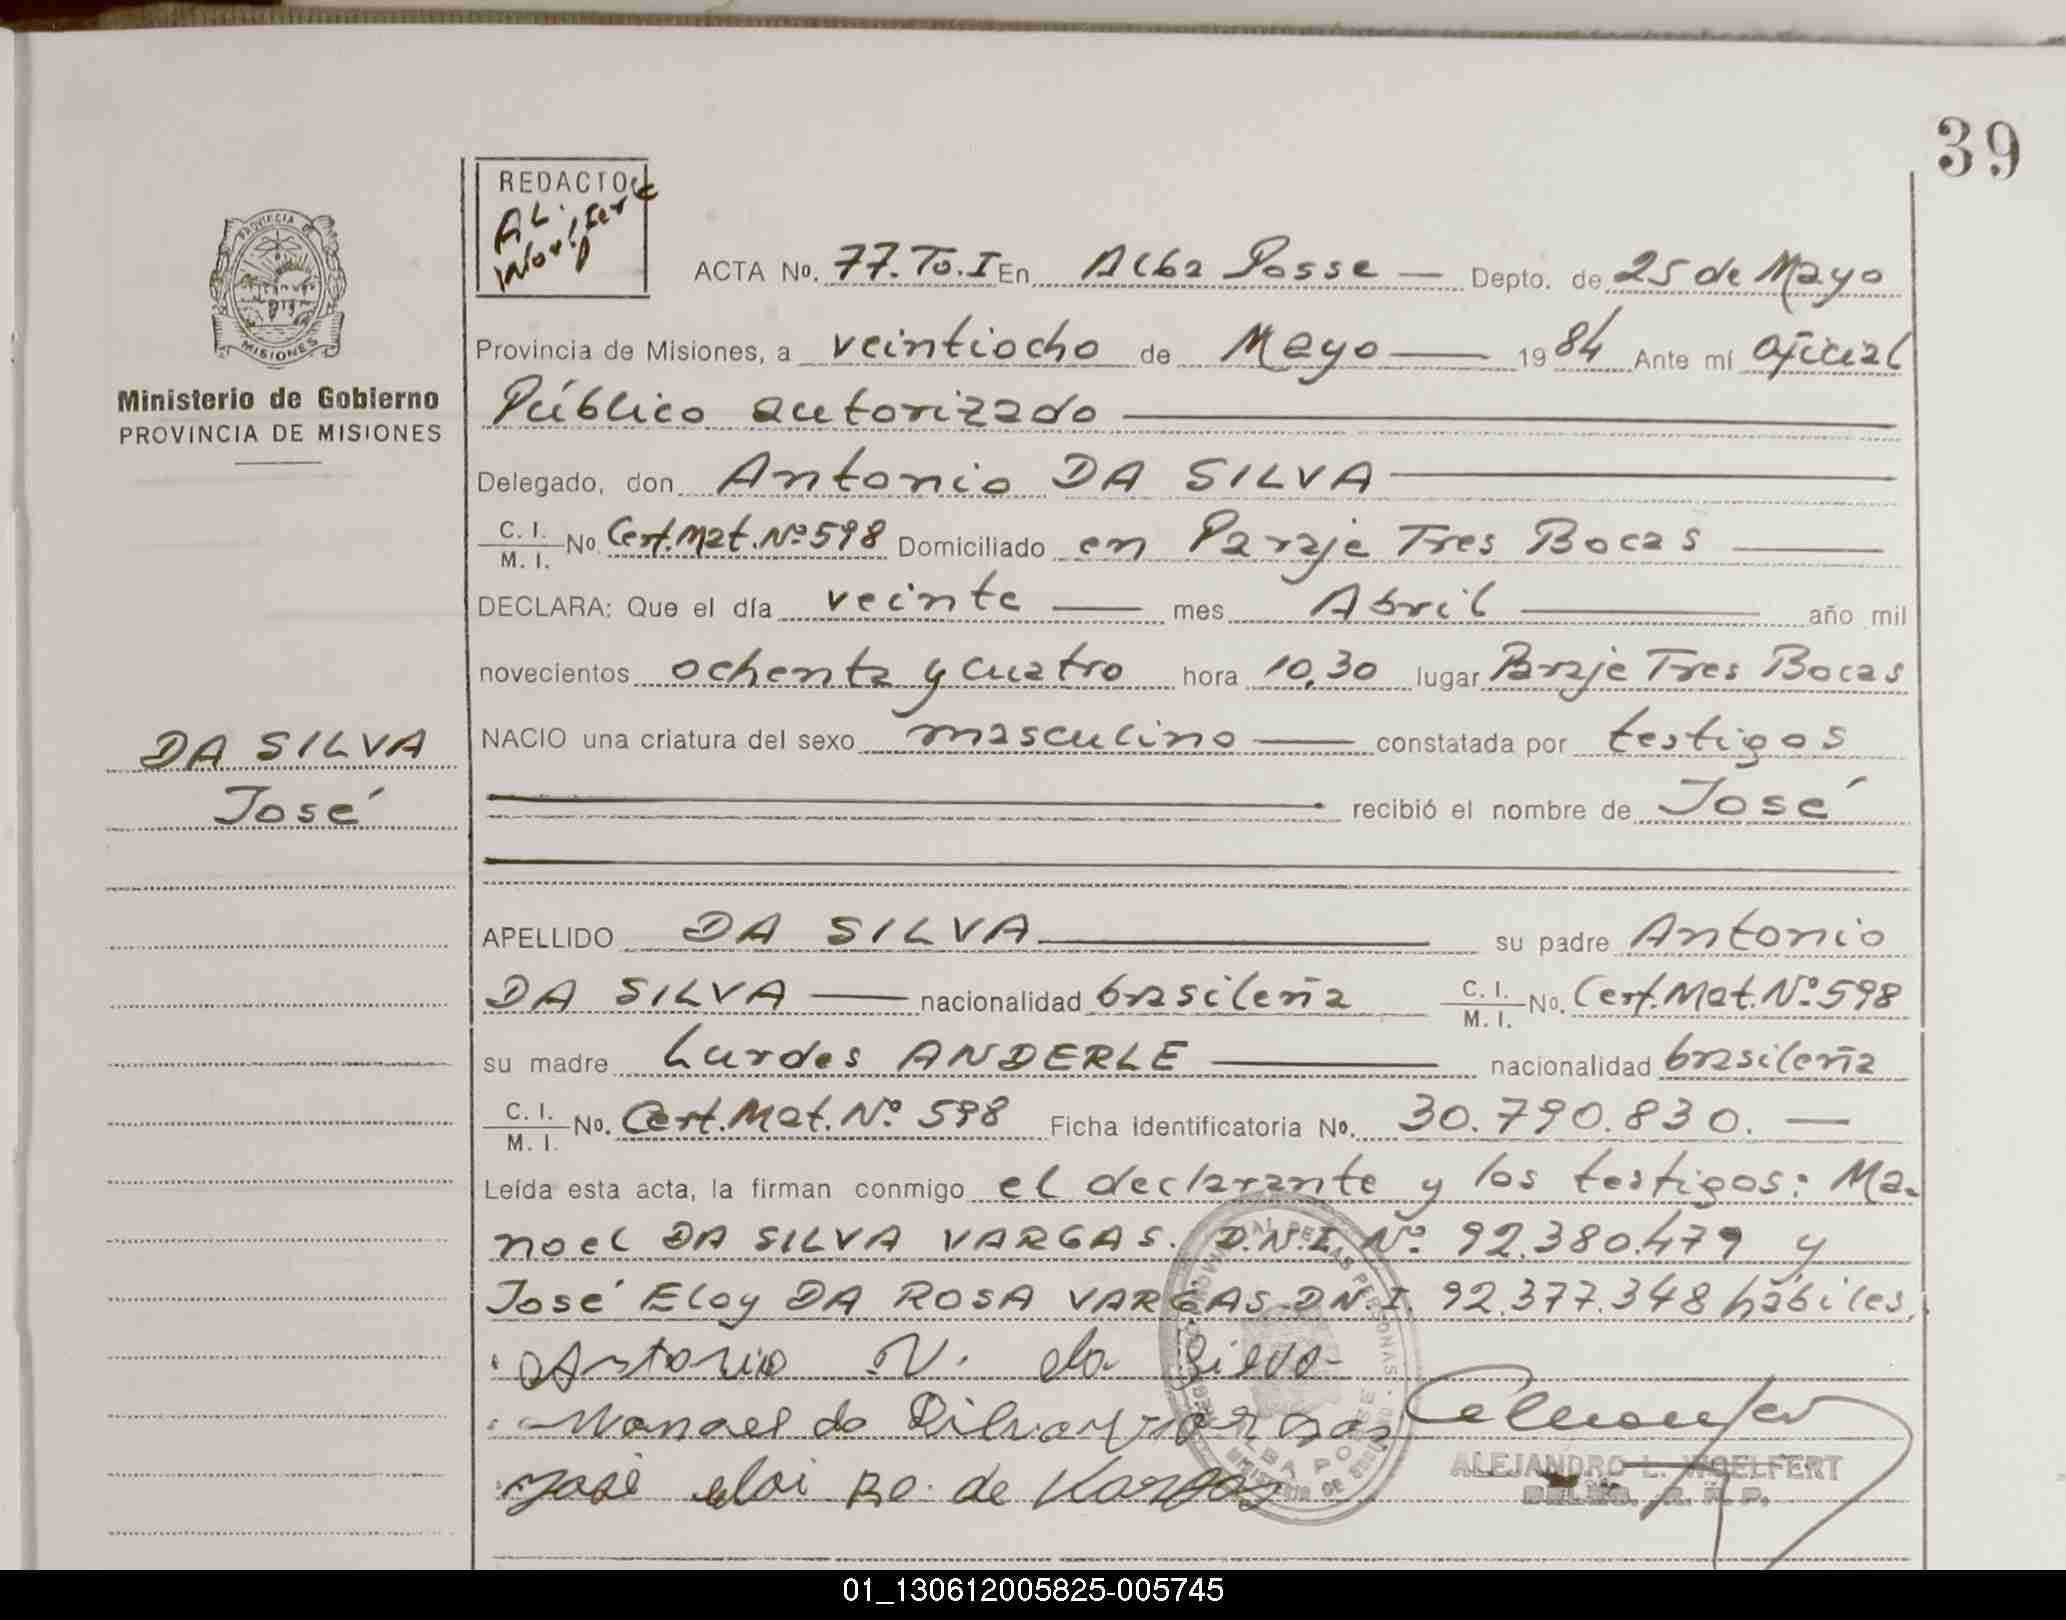 39
REDACTO
AL.
Woelfert
PROVINCIA
MISIONES
Ministerio de Gobierno
PROVINCIA DE MISIONES
ACTA No. 77. To. I En Alba Posse — Depto. de 25 de Mayo
Provincia de Misiones, a veintiocho de Mayo — 1984 Ante mí oficial
Público autorizado
Delegado, don Antonio DA SILVA
C. I. / M. I. No. Cert. Mat. Nº 598 Domiciliado en Paraje Tres Bocas
DECLARA: Que el día veinte — mes Abril — año mil
novecientos ochenta y cuatro hora 10,30 lugar Paraje Tres Bocas
DA SILVA
José
NACIO una criatura del sexo masculino — constatada por testigos
recibió el nombre de José
APELLIDO DA SILVA — su padre Antonio
DA SILVA — nacionalidad brasileña C. I. / M. I. No. Cert. Mat. Nº 598
su madre Lurdes ANDERLE — nacionalidad brasileña
C. I. / M. I. No. Cert. Mat. Nº 598 Ficha Identificatoria No. 30.790.830. —
Leída esta acta, la firman conmigo el declarante y los testigos: Ma-
noel DA SILVA VARGAS. D.N.I. Nº 92.380.479 y
José Eloy DA ROSA VARGAS. D.N.I. 92.377.348 hábiles.
Antonio N. da Silva
Manael da Silva Vargas
José eloi Ro. de Vargas
ALBA POSSE
ALEJANDRO L. WOELFERT
01_130612005825-005745